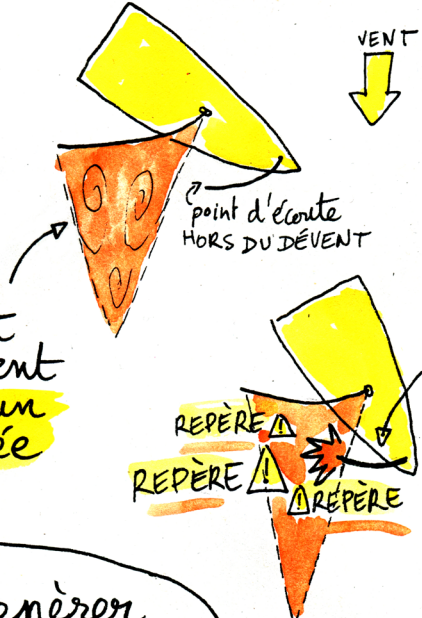 VENT
point d'écoute
HORS DU DÉVENT
t
ent
un
ée
REPÈRE !
REPÈRE !
! REPÈRE